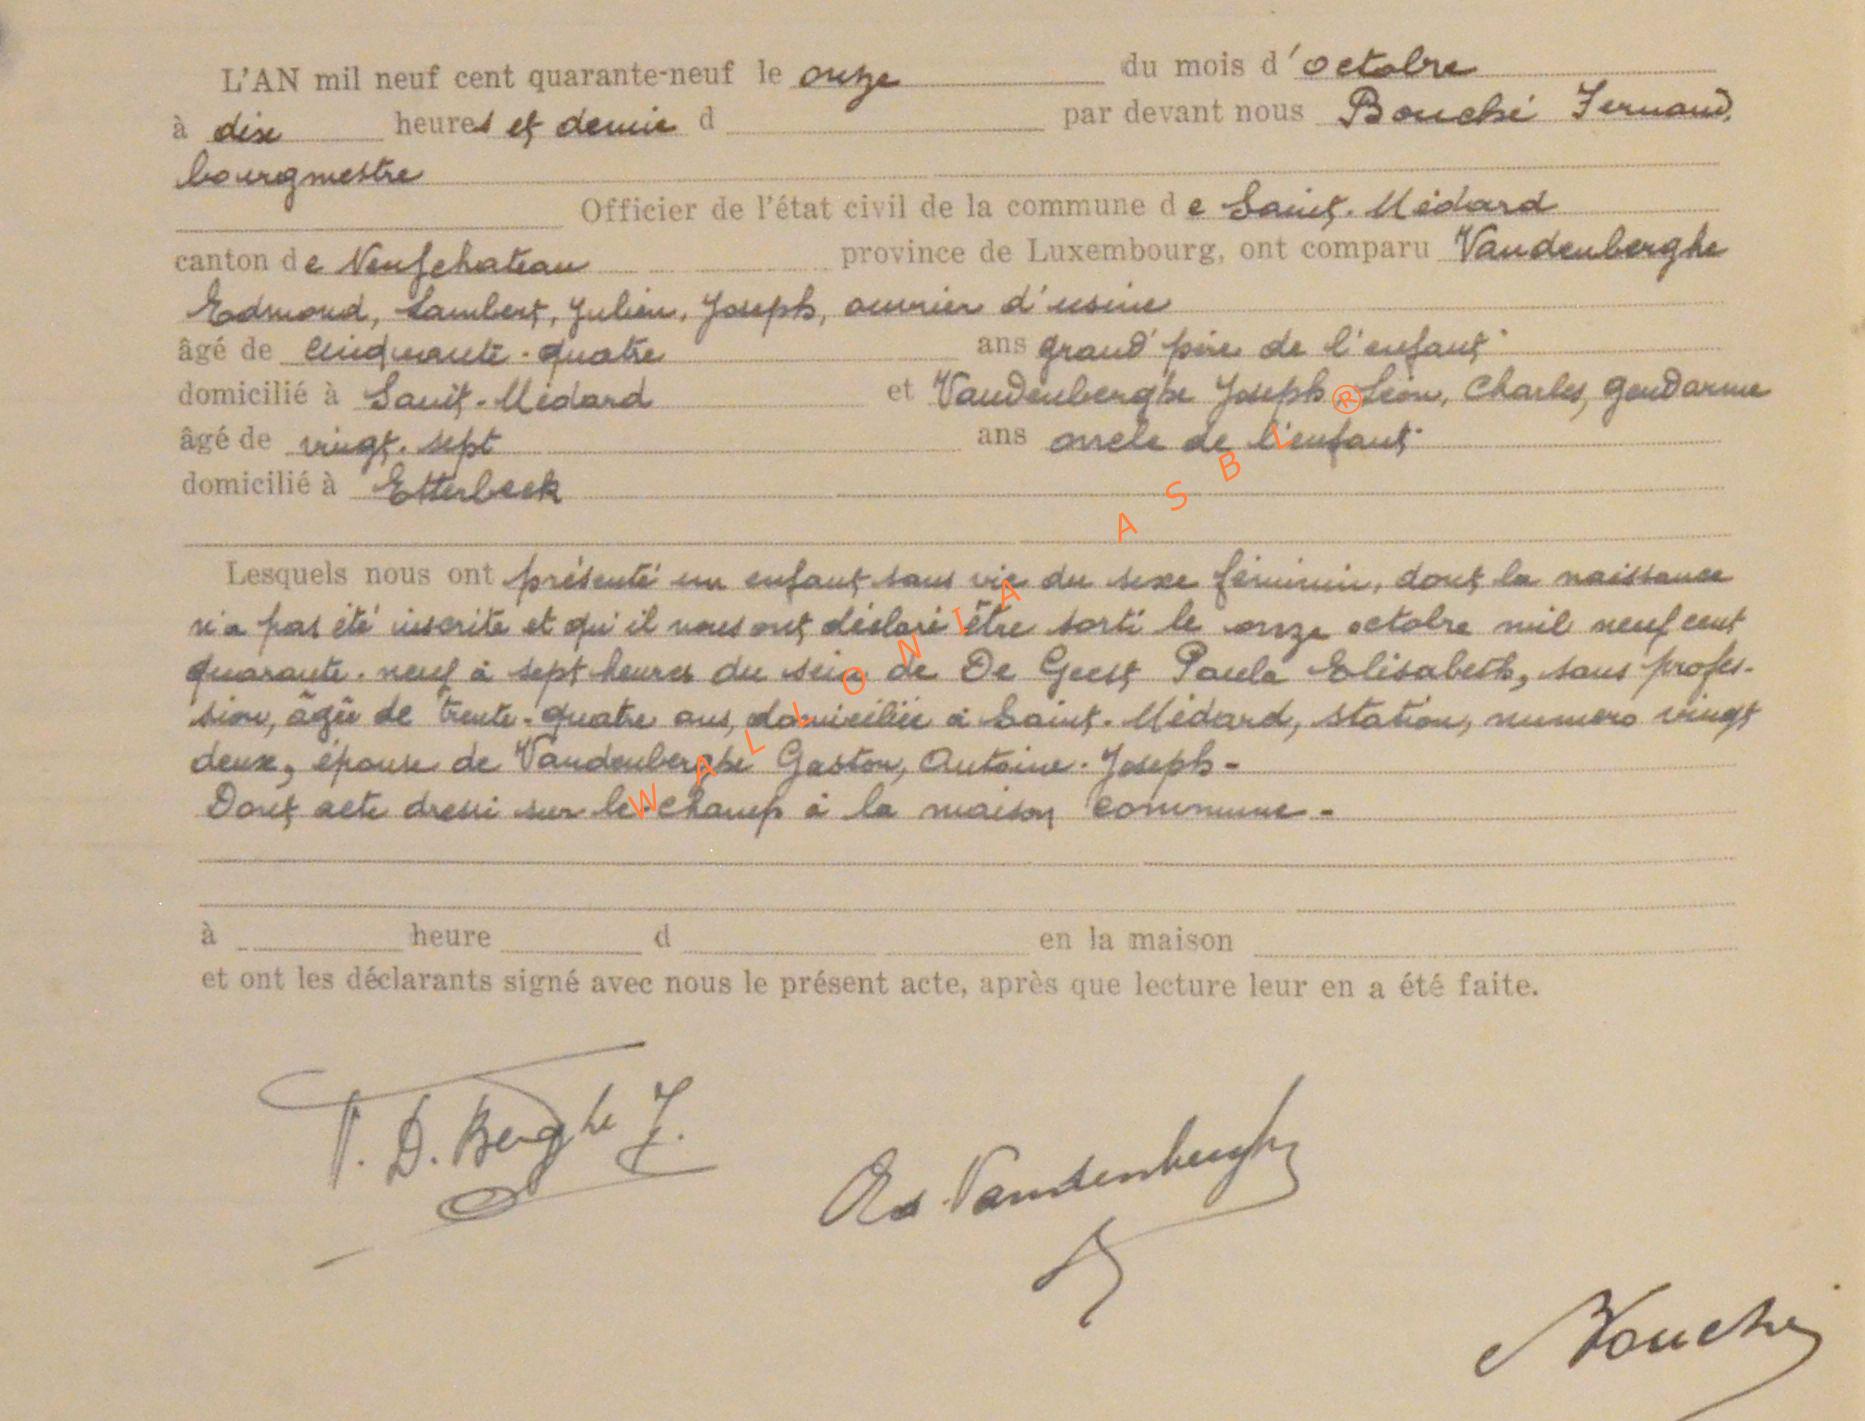 L'AN mil neuf cent quarante-neuf le onze du mois d'octobre
à dix heures et demie d par devant nous Bouché Fernand,
bourgmestre
Officier de l'état civil de la commune de Saint-Médard
canton de Neufchateau province de Luxembourg, ont comparu Vandenberghe
Edmond, Lambert, Julien, Joseph, ouvrier d'usine
âgé de cinquante-quatre ans grand'père de l'enfant
domicilié à Saint-Médard et Vandenberghe Joseph Léon, Charles, gendarme
âgé de vingt-sept ans oncle de l'enfant
domicilié à Etterbeek
Lesquels nous ont présenté un enfant sans vie du sexe féminin, dont la naissance
n'a pas été inscrite et qu'il nous ont déclaré être sorti le onze octobre mil neuf cent
quarante-neuf à sept heures du sein de De Geest Paula Elisabeth, sans profes-
sion, âgée de trente-quatre ans, domiciliée à Saint-Médard, station, numero vingt
deux, épouse de Vandenberghe Gaston, Antoine-Joseph-
Dont acte dressé sur le-champ à la maison commune-
à heure d en la maison
et ont les déclarants signé avec nous le présent acte, après que lecture leur en a été faite.
V. D. Berghe J.
Ed Vandenberghe
Bouché
WALLONIA ASBL ®